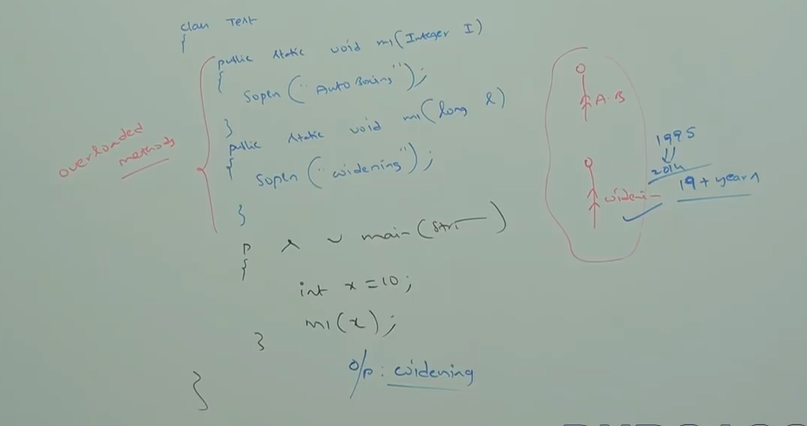 class Test
{
public static void m1(Integer I)
{
Sopln("AutoBoxing");
}
public static void m1(long l)
{
Sopln("widening");
}
p s v main(Stri
{
int x=10;
m1(x);
}
}
o/p: widening
overloaded
methods
A.B
wideni
1995
2014
19+ years